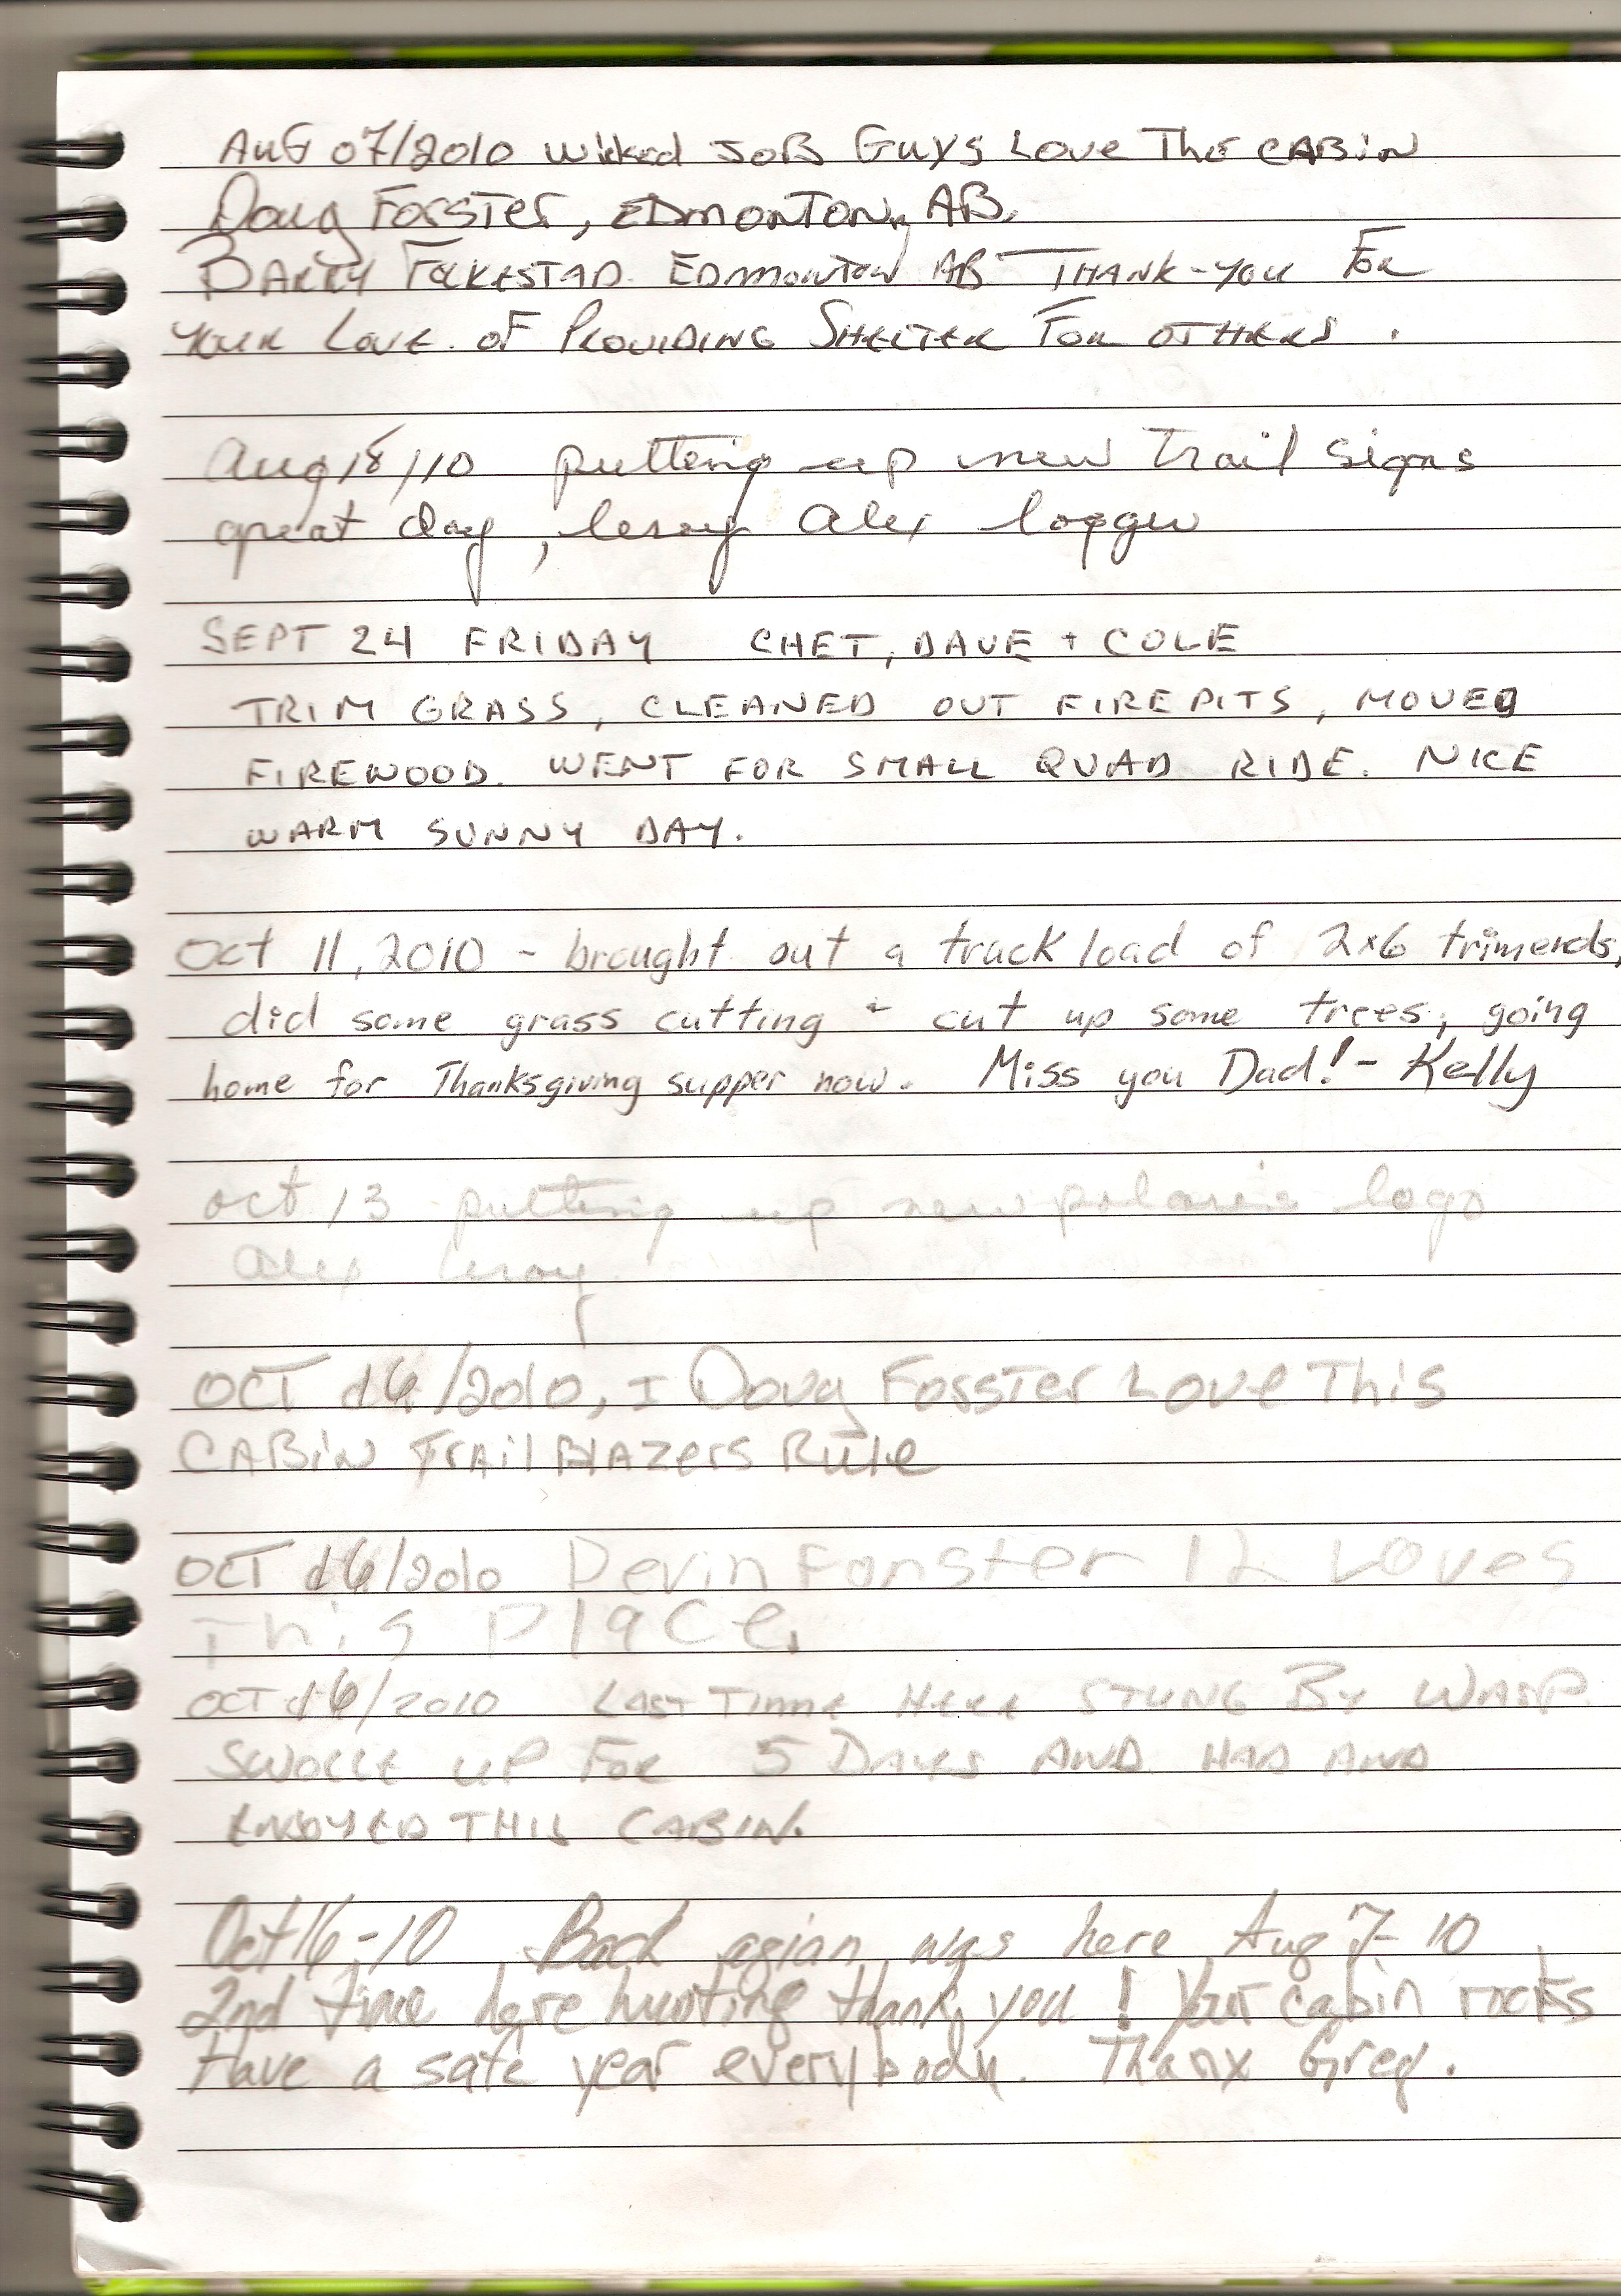 AUG 07/2010 Wicked JOB GUYS LOVE The CABIN
Doug FOSSTER, EDMONTON, AB.
BARRY FOLKESTAD. EDMONTON AB THANK-YOU FOR
YOUR LOVE OF PROVIDING SHELTER FOR OTHERS.
Aug 18/10 putting up new trail signs
great day, leroy Alex logger
SEPT 24 FRIDAY CHET, DAVE + COLE
TRIM GRASS, CLEANED OUT FIREPITS, MOVED
FIREWOOD. WENT FOR SMALL QUAD RIDE. NICE
WARM SUNNY DAY.
Oct 11, 2010 - brought out a truck load of 2x6 trimends,
did some grass cutting + cut up some trees, going
home for Thanksgiving supper now. Miss you Dad! - Kelly
oct 13 putting up new polaris logo
Alex leroy
OCT 16/2010, I Doug FOSSTER LOVE This
CABIN TRAIL BLAZERS RULE
OCT 16/2010 Devin Fonster 12 Loves
This Place.
OCT 16/2010 LAST TIME HERE STUNG BY WASP
SWOLLE UP FOR 5 DAYS AND HAD AND
ENJOYED THIS CABIN.
Oct 16-10 Back agian was here Aug 7-10
2nd time here hunting thank you! Your cabin rocks
Have a safe year everybody. Thanx Greg.